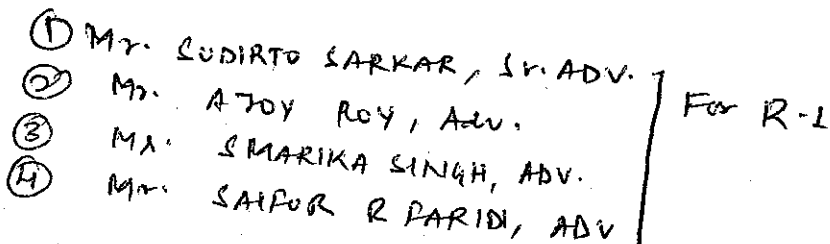 ① Mr. SUDIRTO SARKAR, Sr. ADV.
② Mr. AJOY ROY, Adv.
③ Ms. SMARIKA SINGH, ADV.
④ Mr. SAIFUR R FARIDI, ADV
For R-1